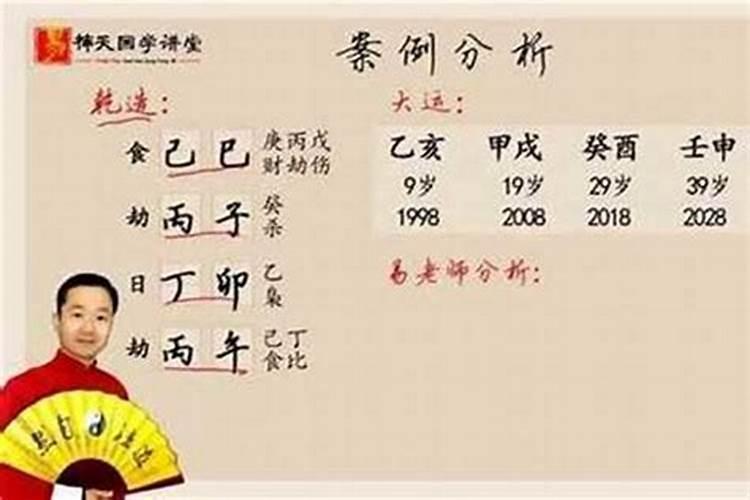 易 神天国学讲堂
案例分析
乾造：
食 己 巳 庚 丙 戊
财 劫 伤
劫 丙 子 癸
杀
日 丁 卯 乙
枭
劫 丙 午 己 丁
食 比
大运：
乙亥 甲戌 癸酉 壬申
9岁 19岁 29岁 39岁
1998 2008 2018 2028
易老师分析：